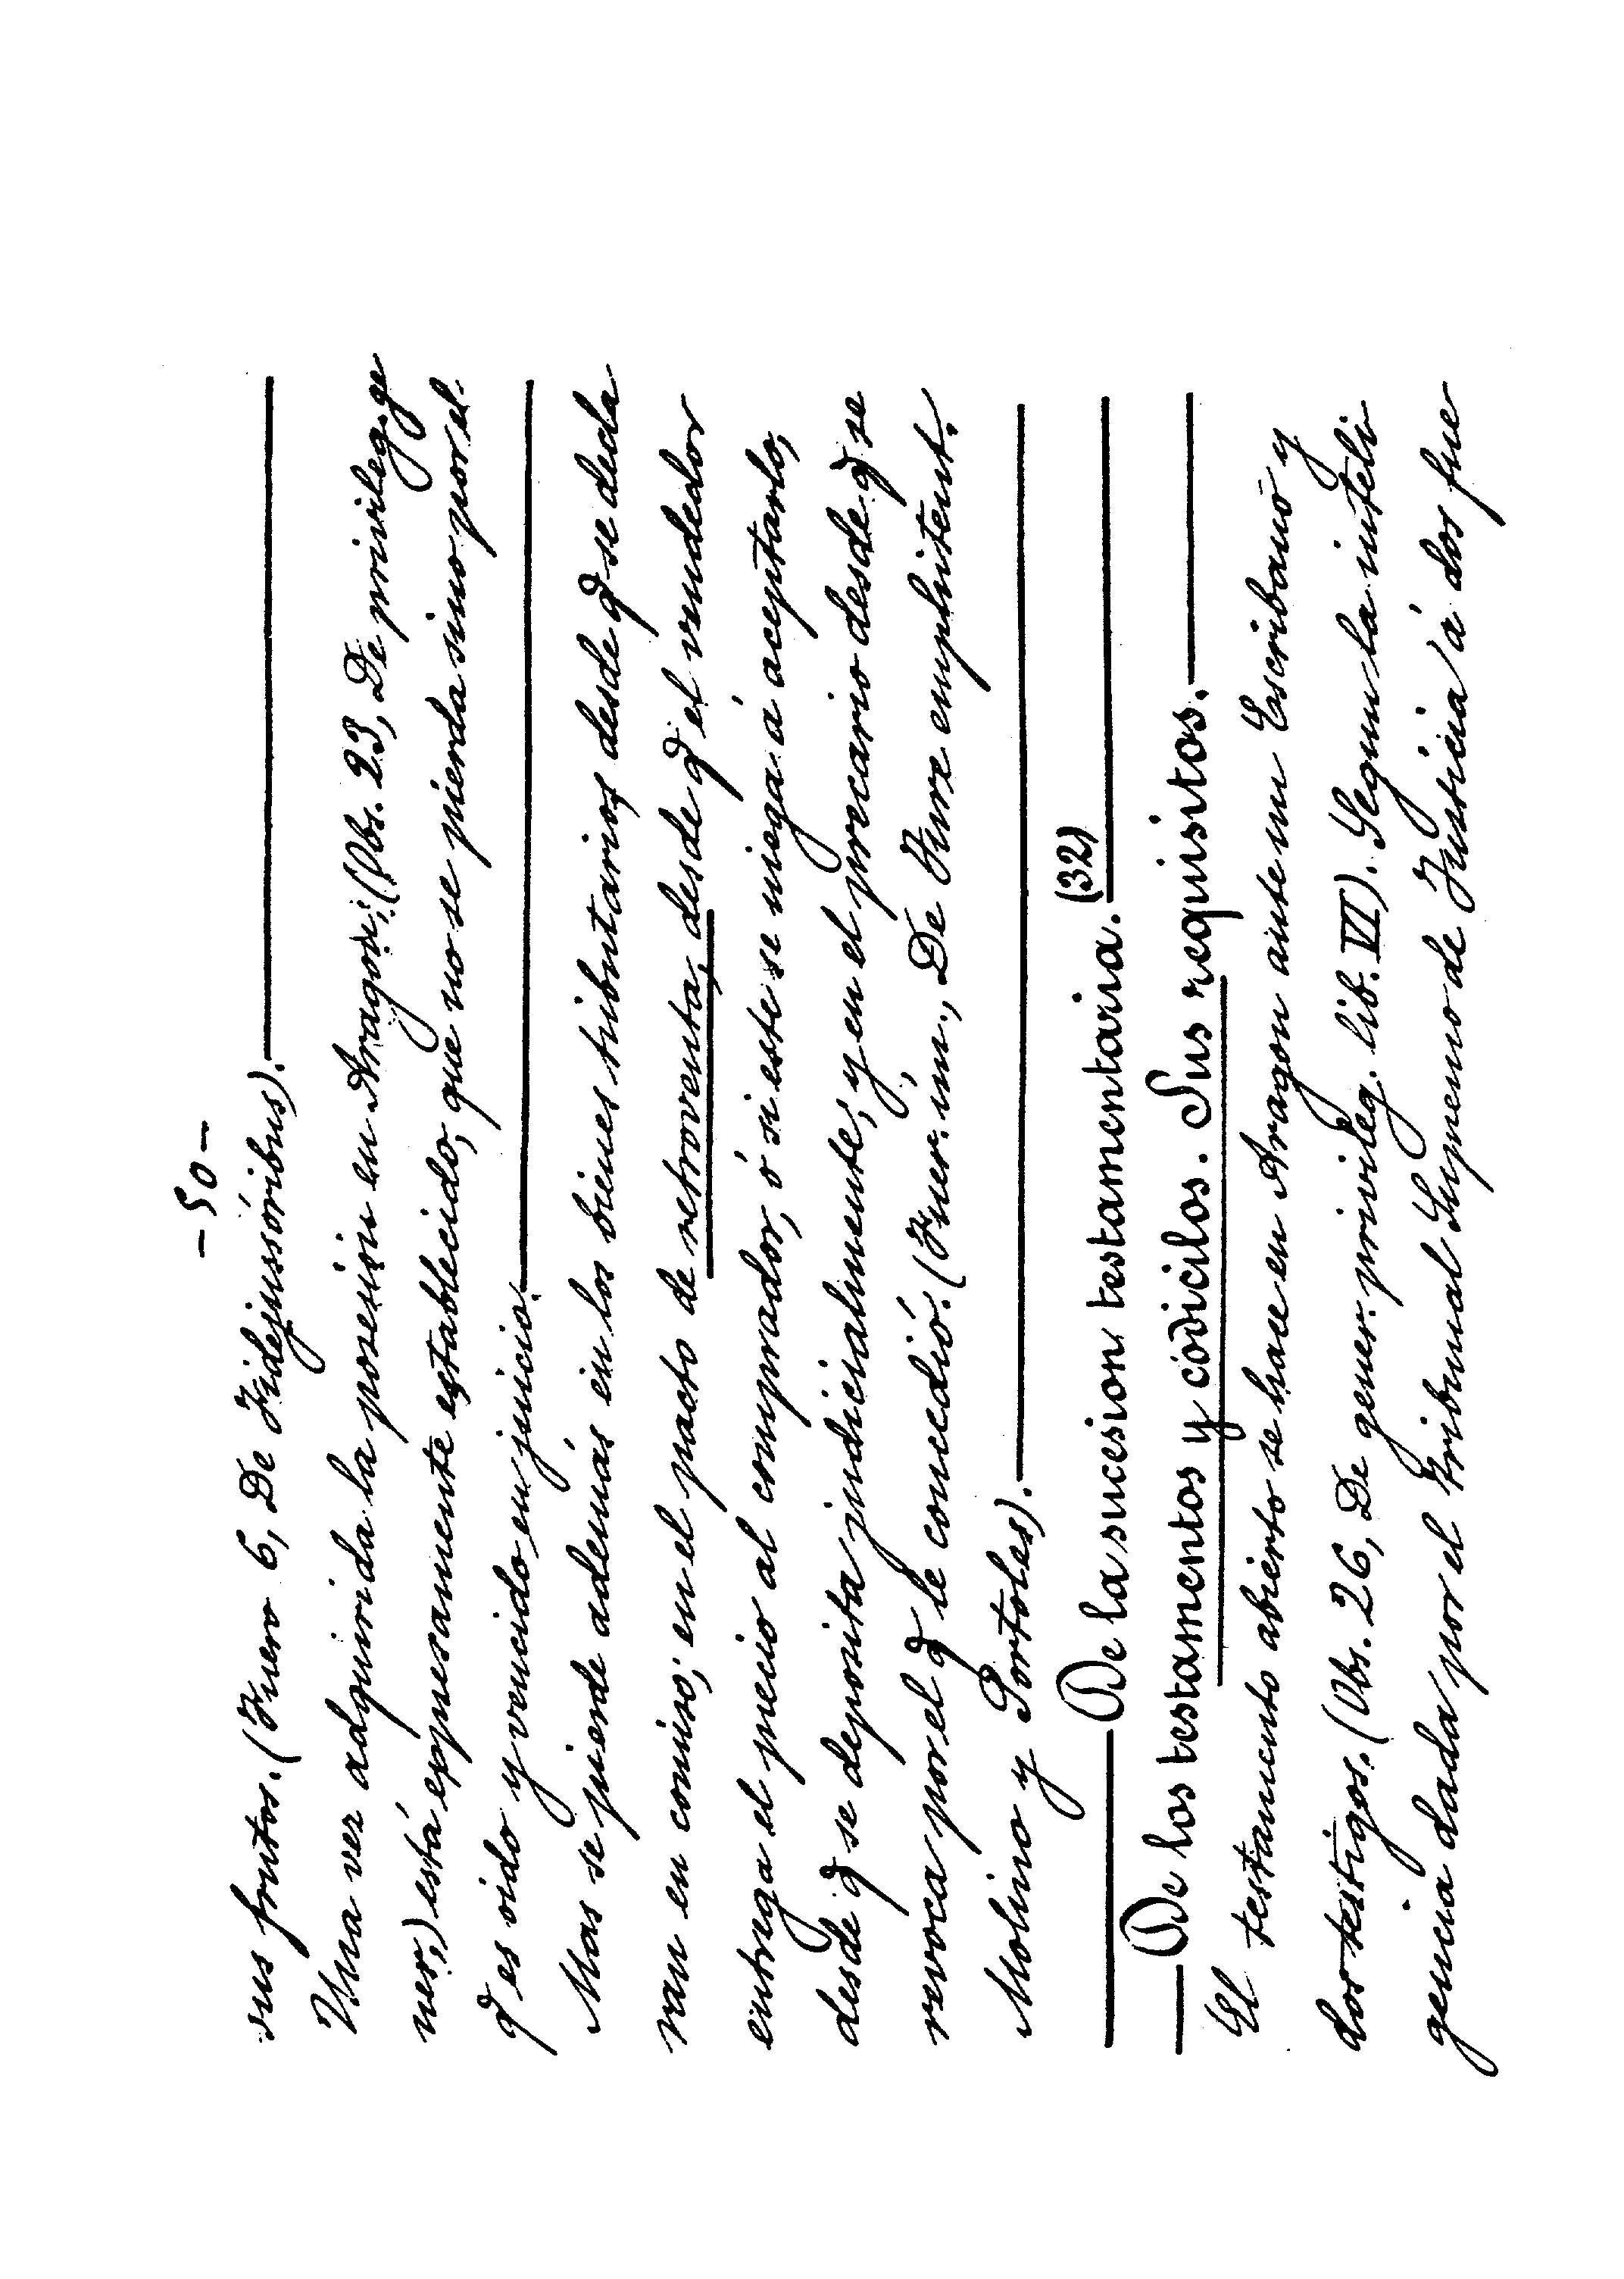 - 50 -
sus frutos. (Fuero 6, De Fidejussóribus).
Una vez adquirida la posesión en Aragón (Obs. 23, De privileg. ge
ner.) está expresamente establecido, que no se pierda sino por el
q es oido y vencido en juicio.
Mas se pierde además en los bienes tributarios desde q se decla
ran en comiso; en el pacto de retroventa, desde q el vendedor
entrega el precio al comprador, ó si este se niega á aceptarlo,
desde q se deposita judicialmente; y en el precario desde q se
revoca por el q le concedió. (Fuer. ún., De Jure emphiteut.
Molino y Portoles).
De la sucesion testamentaria. (32)
De los testamentos y codicilos. Sus requisitos.
El testamento abierto se hace en Aragon ante un Escribano y
dos testigos. (Obs. 26, De gener. privileg. lib. VI). Segun la inteli
gencia dada por el Tribunal Supremo de Justicia á dos fue